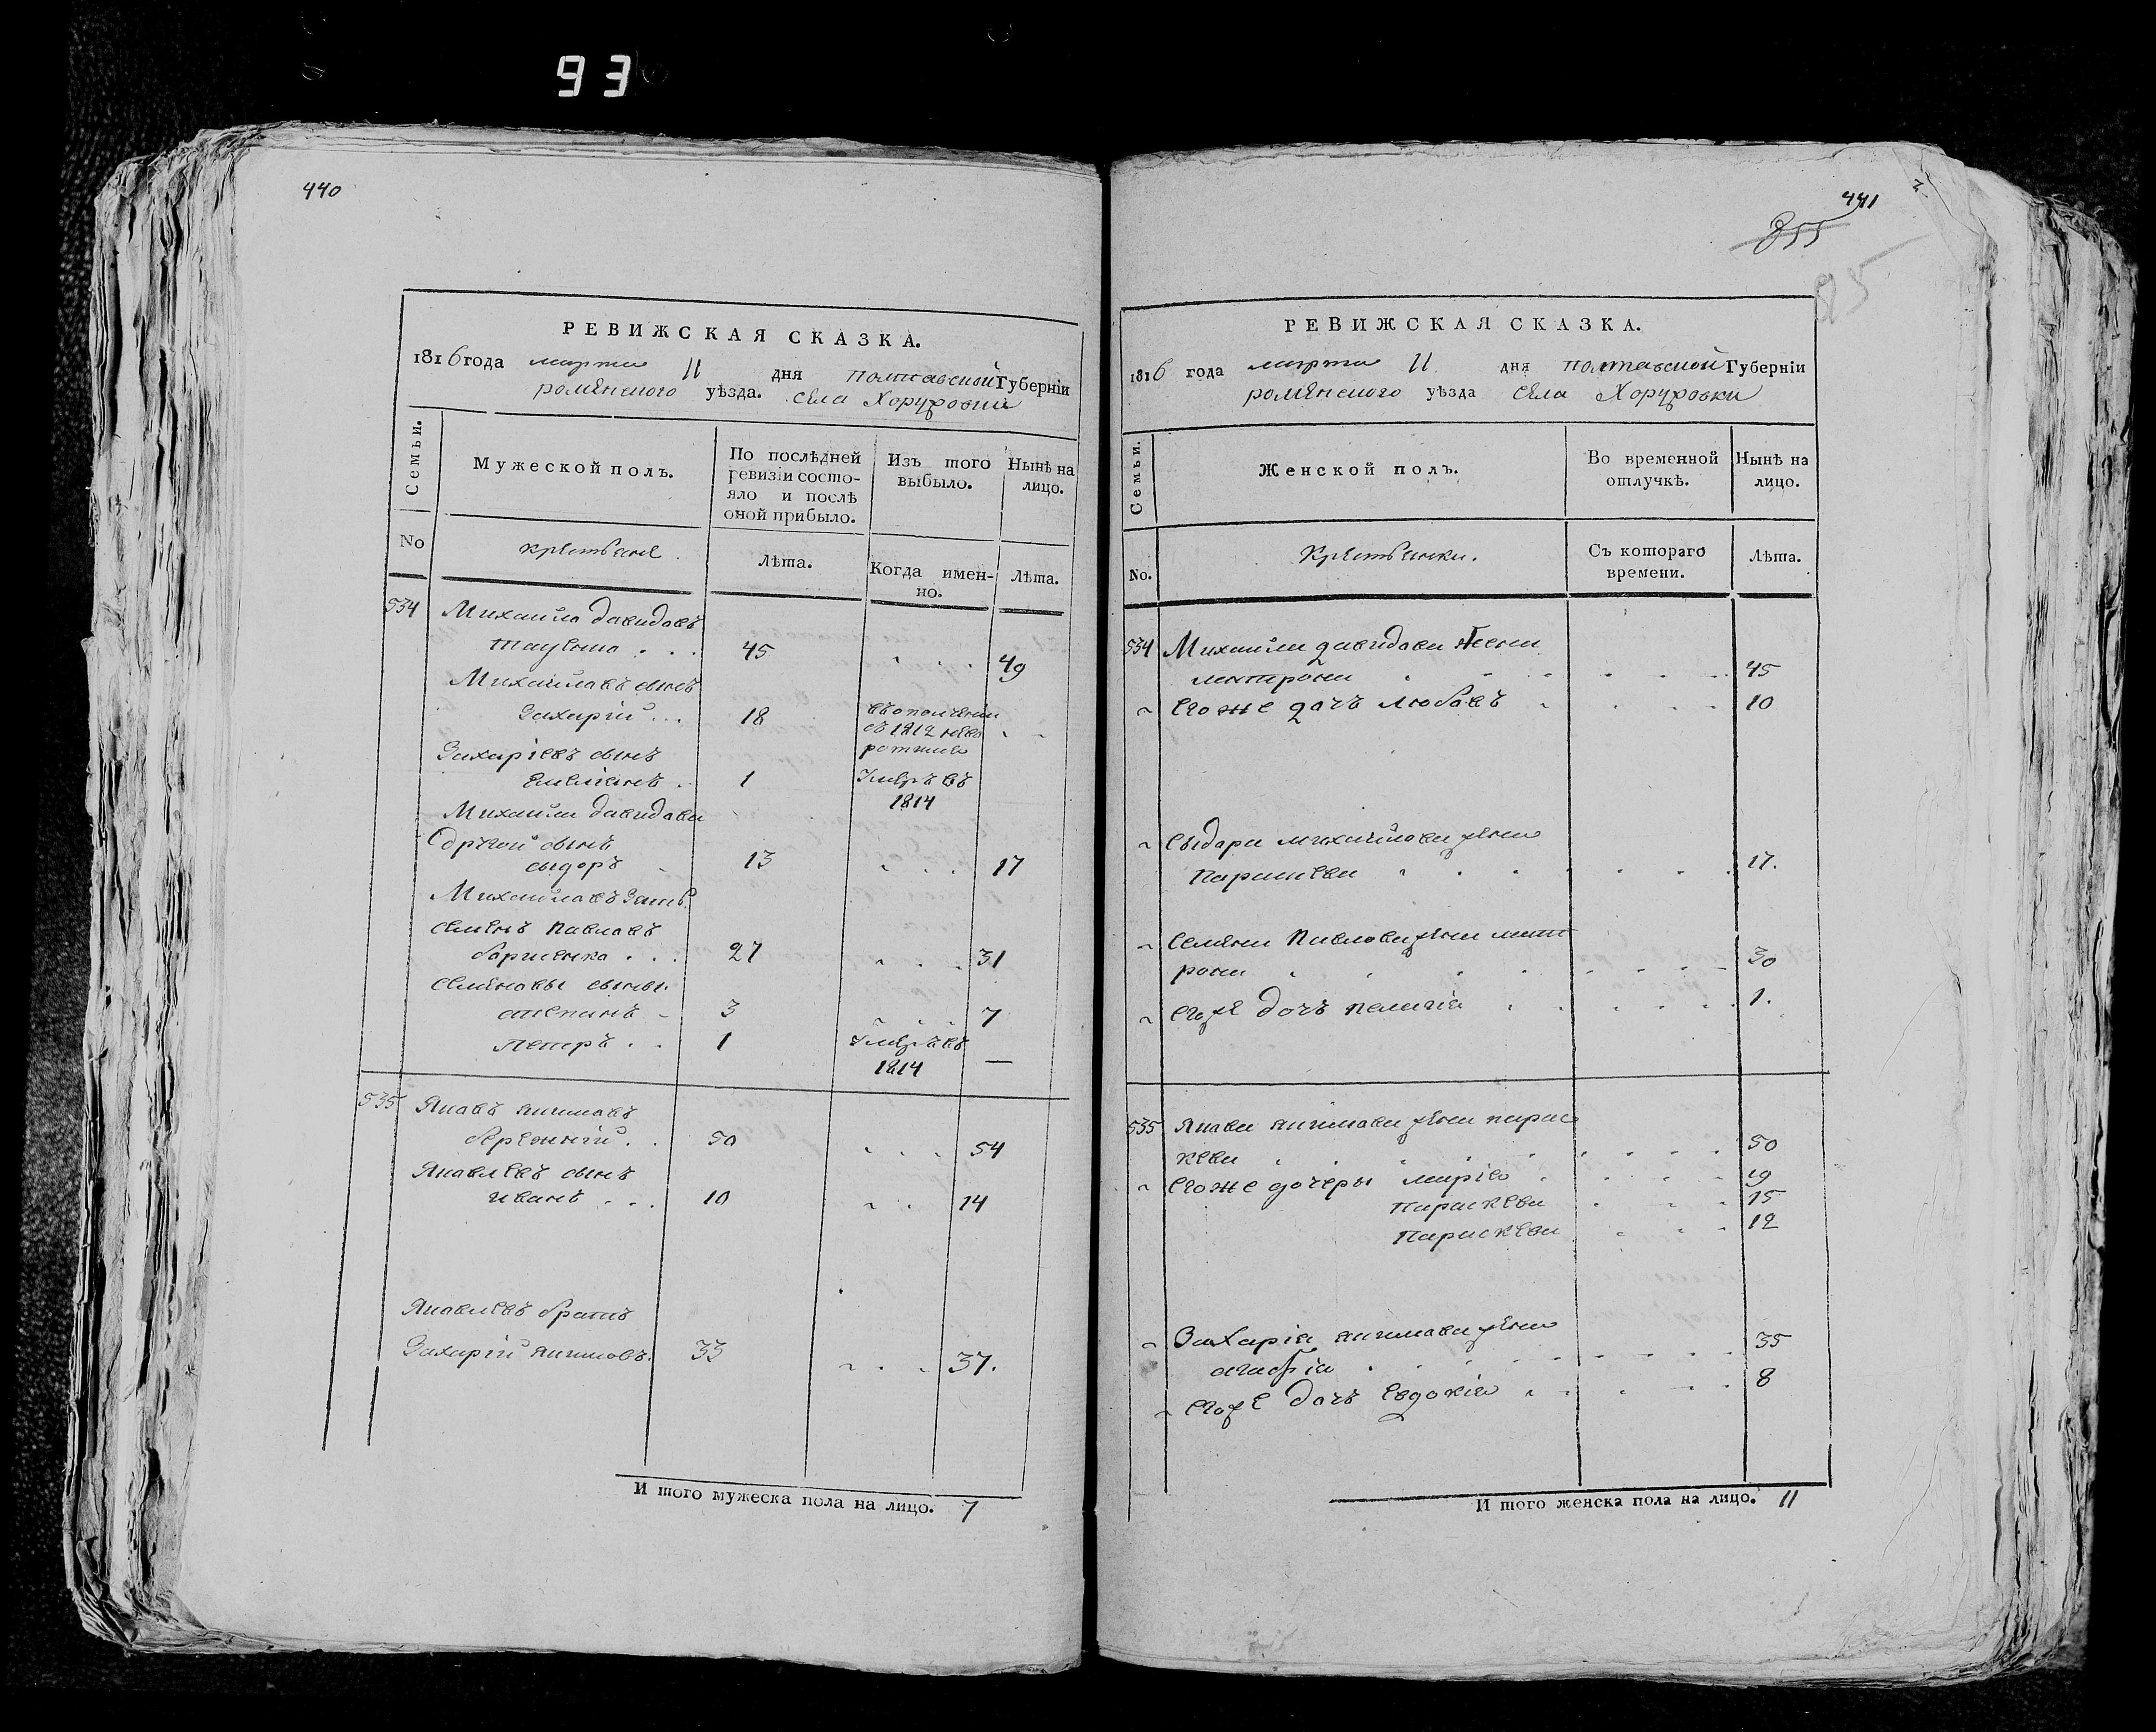 93
440
РЕВИЖСКАЯ СКАЗКА.
1816 года марта 11 дня полтавской Губерніи
роменского уѣзда. села Хоружовки
Семьи.
Мужеской полъ.
По послѣдней
ревизіи состо-
яло и послѣ
оной прибыло.
Изъ того
выбыло.
Нынѣ на
лицо.
No
крестьяне
Лѣта.
Когда имен-
но.
Лѣта.
534 Михаила давидовъ
45 49
Михайловъ сынъ
Захарій 18 въ ополченіи
съ 1812
Захаріевъ сынъ
Емеліянъ 1 Умеръ въ
1814
Михаила давидова
другой сынъ
сыдоръ 13 17
Михайловъ зять
семенъ павловъ
27 31
семеновы сыны
степанъ 3 7
петръ 1 Умеръ въ
1814 —
535 Яковъ якимовъ
бережній 50 54
Яковлевъ сынъ
иванъ 10 14
Яковлевъ братъ
Захарій якимовъ. 33 37.
И того мужеска пола на лицо. 7
441
855
85
РЕВИЖСКАЯ СКАЗКА.
1816 года марта 11 дня полтавской Губерніи
роменского уѣзда села Хоружовки
Семьи.
Женской полъ.
Во временной
отлучкѣ.
Нынѣ на
лицо.
No.
Крестьянки.
Съ котораго
времени.
Лѣта.
534 Михайла давидова жена
мотрона 45
Его же дочъ любовъ 10
Сыдора михайлова жена
параскева 17.
Семена павлова жена мат
рона 30
Егоже дочъ пелагія 1.
535 Якова якимова жена парас
кева 50
Егоже дочеры марія 19
параскева 15
параскева 12
Захарія якимова жена
агафія 35
Егоже дочъ евдокія 8
И того женска пола на лицо. 11